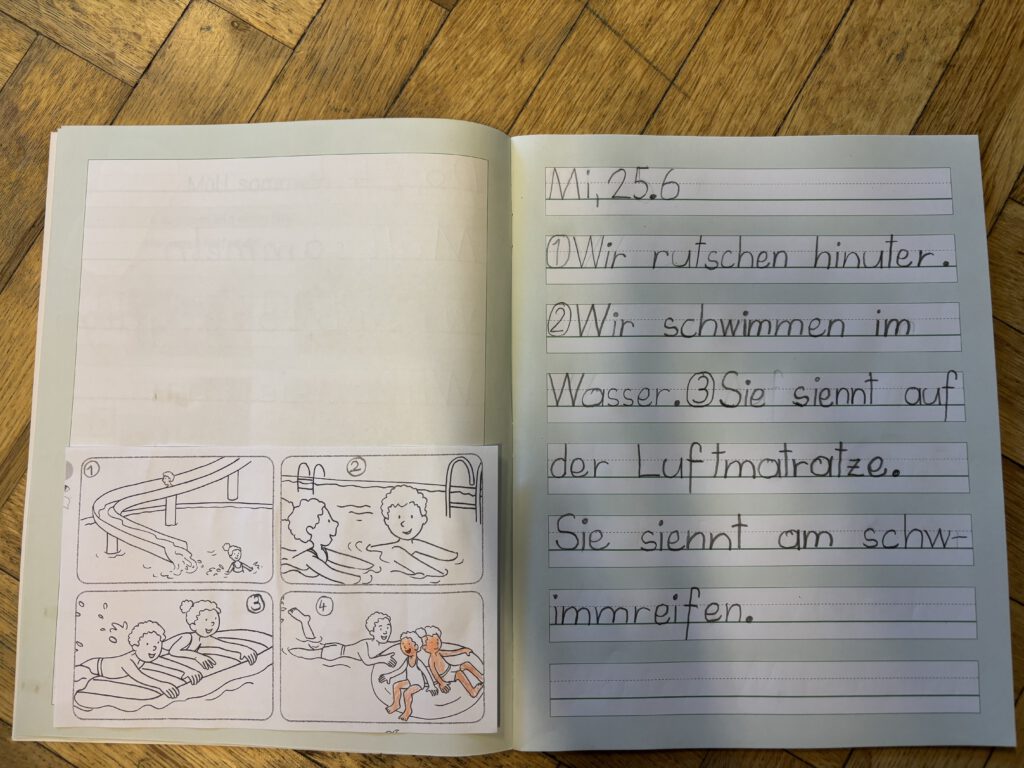 ①
②
③
④
Mi, 25.6
①Wir rutschen hinuter.
②Wir schwimmen im
Wasser. ③Sie siennt auf
der Luftmatratze.
Sie siennt am schw-
immreifen.